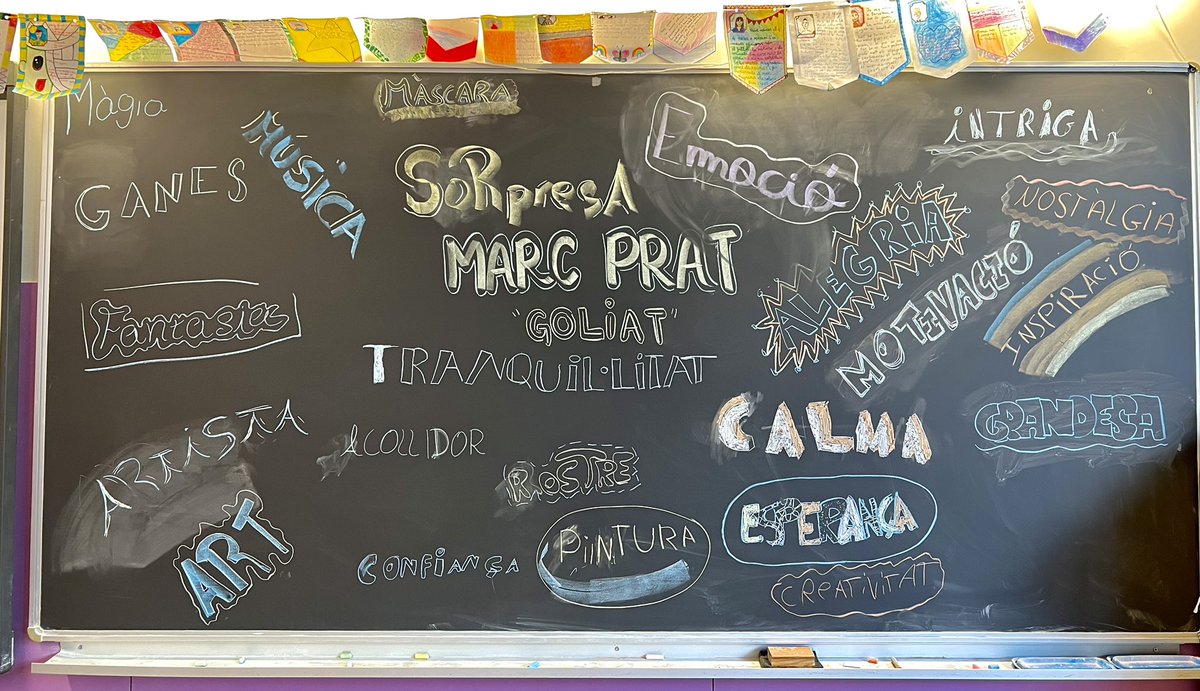 Màgia
MÀSCARA
MÚSICA
Emoció
INTRIGA
GANES
SORpresA
NOSTÀLGIA
MARC PRAT
ALEGRIA
MOTIVACIÓ
INSPIRACIÓ
"GOLIAT"
Fantasia
TRANQUIL·LITAT
ARTISTA
ACOLLIDOR
CALMA
GRANDESA
ROSTRE
ART
PINTURA
ESPERANÇA
CONFIANÇA
CREATIVITAT